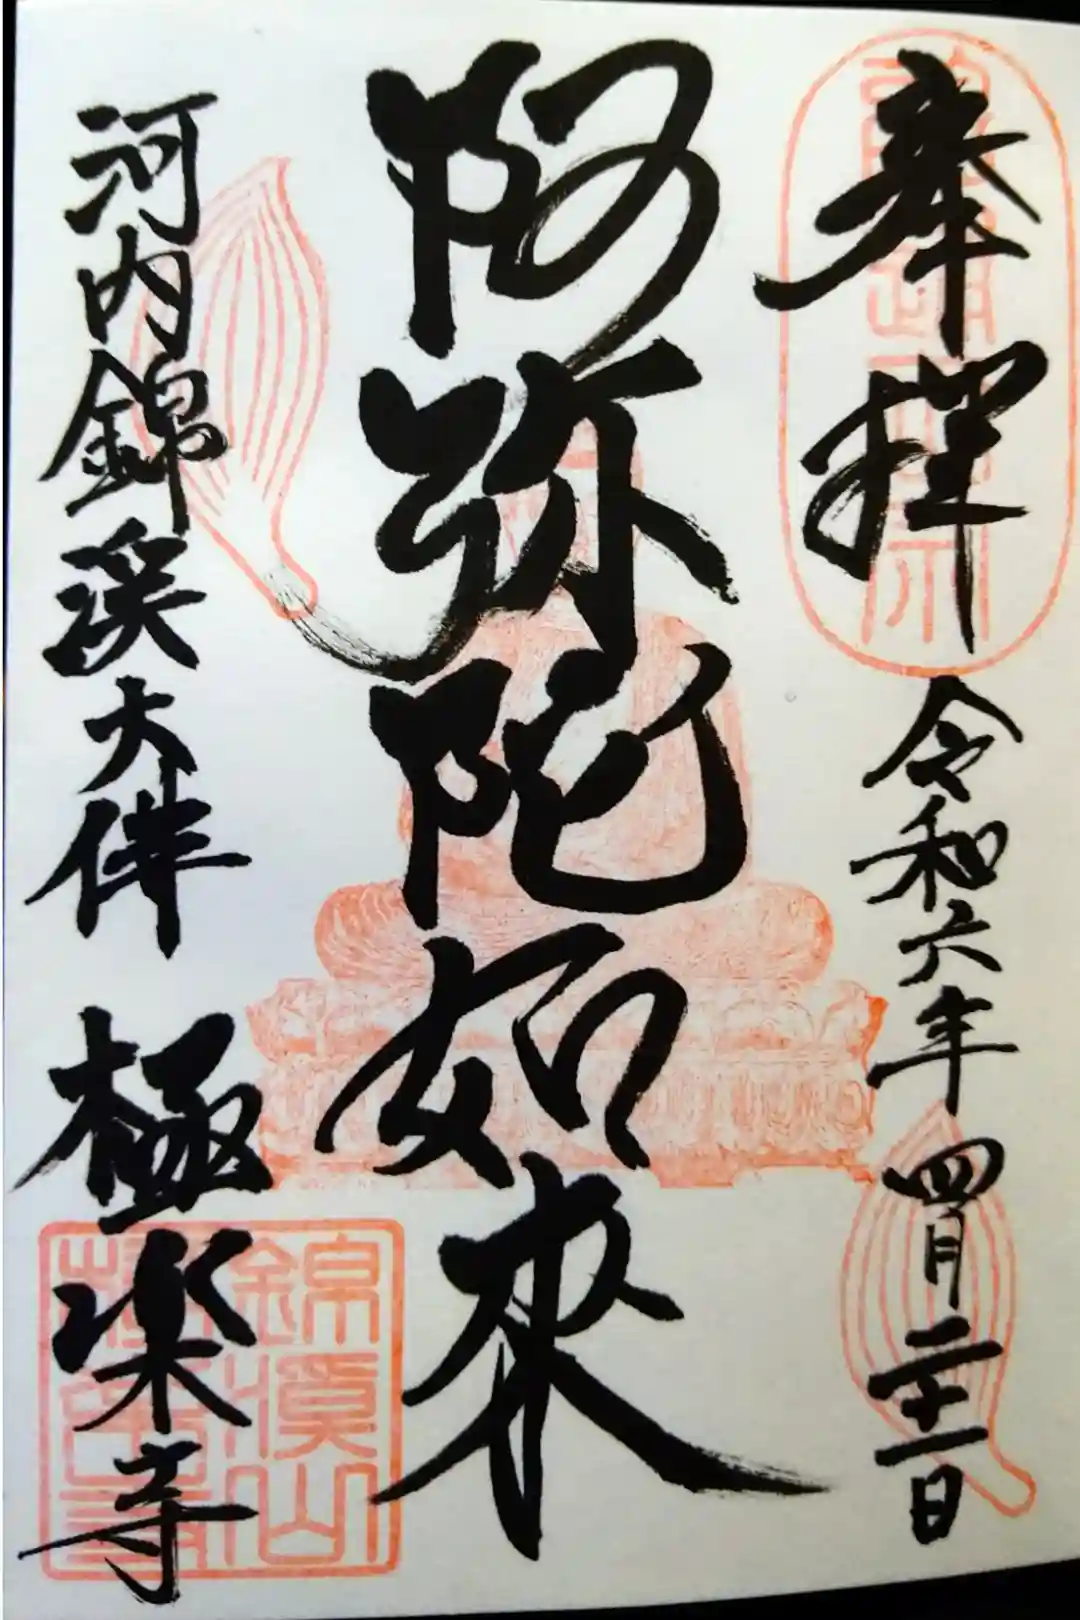 奉拝 令和六年四月二十一日
阿弥陀如来
河内錦渓大伴 極楽寺
錦溪山